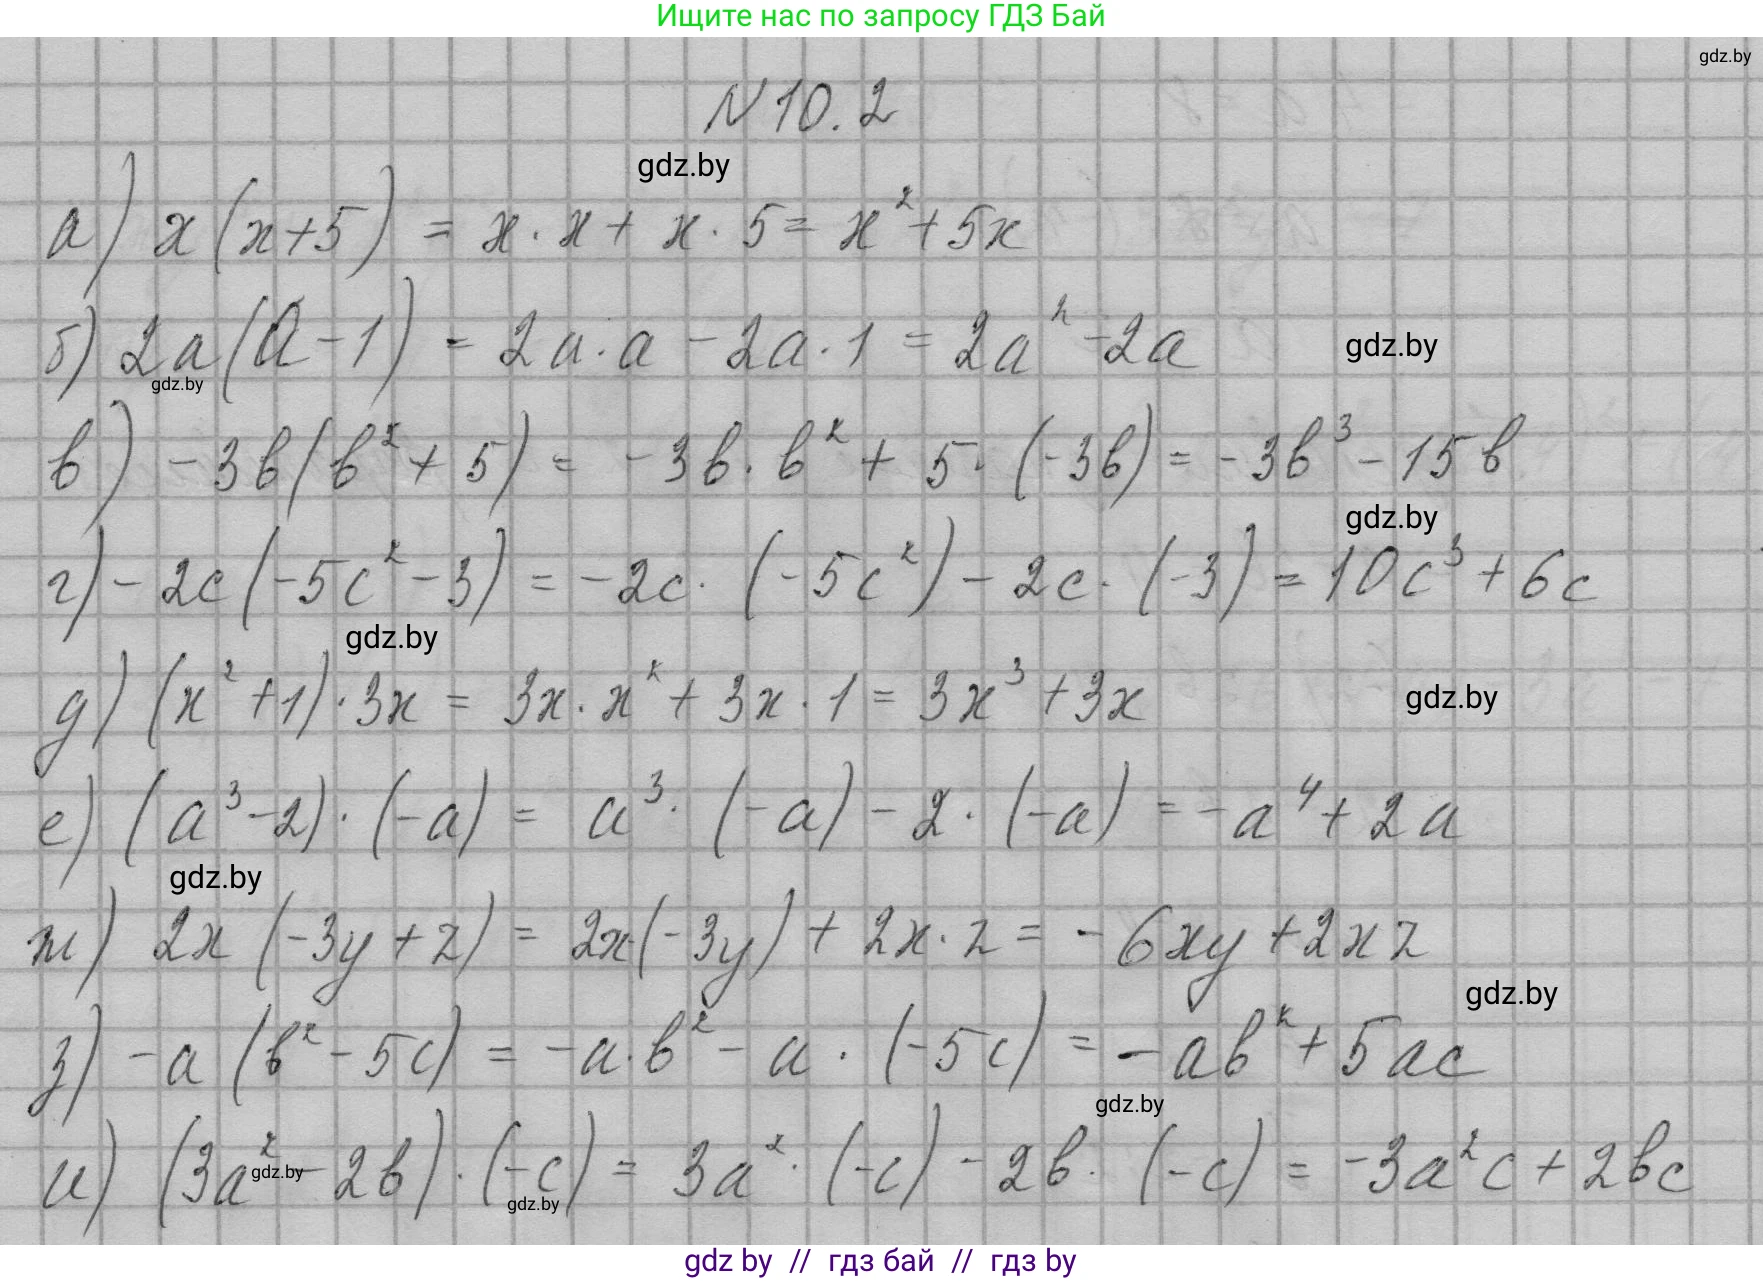 Ищите нас по запросу ГДЗ Бай
gdz.by
N10.2
gdz.by
а) x(x+5) = x·x + x·5 = x²+5x
б) 2a(a-1) = 2a·a - 2a·1 = 2a² - 2a
gdz.by
gdz.by
в) -3b(b²+5) = -3b·b² + 5·(-3b) = -3b³ - 15b
gdz.by
г) -2c(-5c²-3) = -2c·(-5c²) - 2c·(-3) = 10c³ + 6c
gdz.by
д) (x²+1)·3x = 3x·x² + 3x·1 = 3x³ + 3x
gdz.by
е) (a³-2)·(-a) = a³·(-a) - 2·(-a) = -a⁴ + 2a
gdz.by
ж) 2x(-3y+z) = 2x·(-3y) + 2x·z = -6xy + 2xz
gdz.by
з) -a(b²-5c) = -a·b² - a·(-5c) = -ab² + 5ac
gdz.by
и) (3a²-2b)·(-c) = 3a²·(-c) - 2b·(-c) = -3a²c + 2bc
gdz.by
gdz.by
gdz by // гдз бай // гдз by